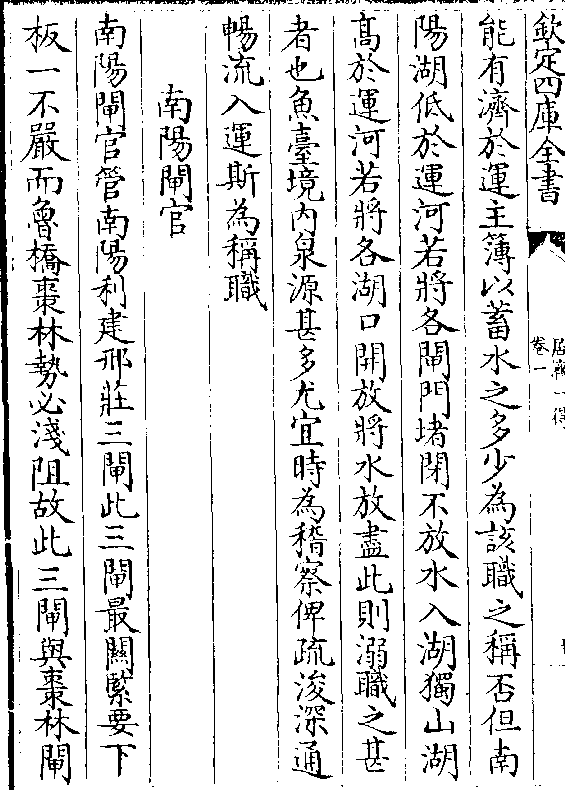 欽定四庫全書
居濟一得
卷一
能有濟於運主簿以蓄水之多少為該職之稱否但南
陽湖低於運河若將各閘門堵閉不放水入湖獨山湖
髙於運河若將各湖口開放將水放盡此則溺職之甚
者也魚臺境内泉源甚多尤宜時為稽察俾疏浚深通
暢流入運斯為稱職
南陽閘官
南陽閘官管南陽利建邢莊三閘此三閘最關緊要下
板一不嚴而魯橋棗林勢必淺阻故此三閘與棗林閘